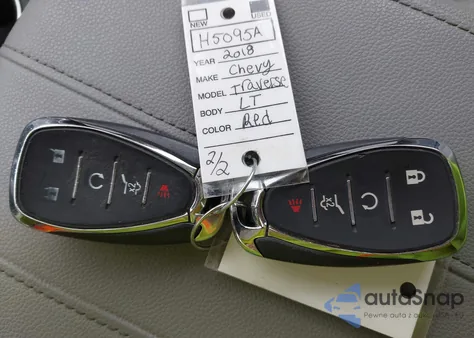 NEW USED
H5095A
YEAR 2018
MAKE Chevy
MODEL Traverse
BODY LT
COLOR Red
2/2
x2
x2
autoSnap
Pewne auta z